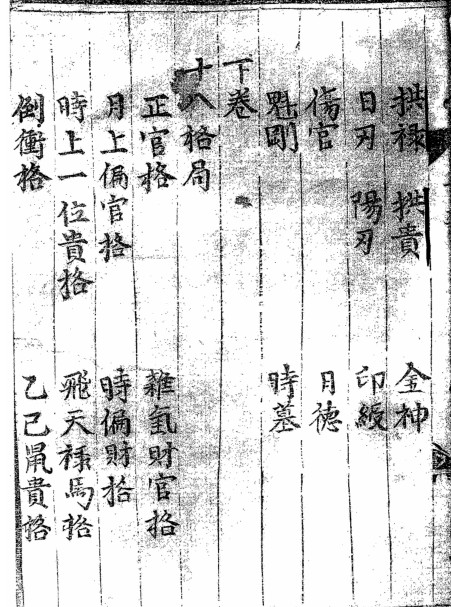 拱禄 拱貴 金神
日刃 陽刃 印綬
傷官 日德
魁罡 時墓
下卷
十八格局
正官格 雜氣財官格
月上偏官格 時偏財格
時上一位貴格 飛天禄馬格
倒衝格 乙己鼠貴格